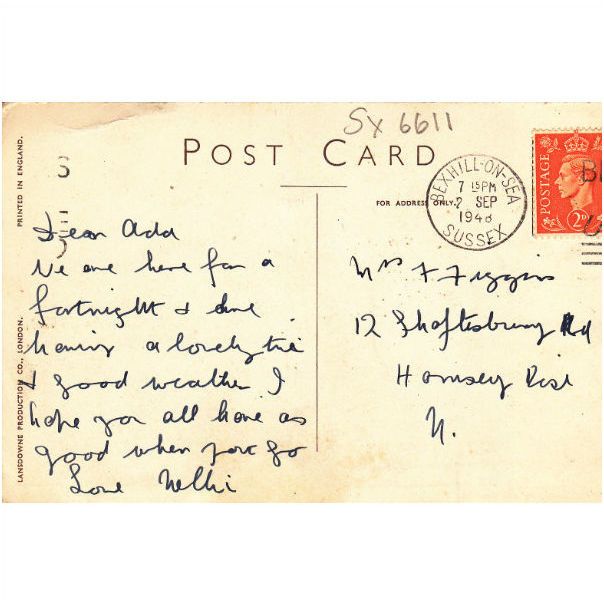 Sx 6611
POST CARD
PRINTED IN ENGLAND.
LANSDOWNE PRODUCTION CO., LONDON.
FOR ADDRESS ONLY.
BEXHILL-ON-SEA
7 15PM
2 SEP
1948
SUSSEX
POSTAGE
2D
Dear Ada
We are here for a
fortnight &
having a lovely time
& good weather I
hope you all have as
good when you go
Love Nelli
Mrs F Figgins
12 Shaftesbury Rd
Hornsey Rise
N.